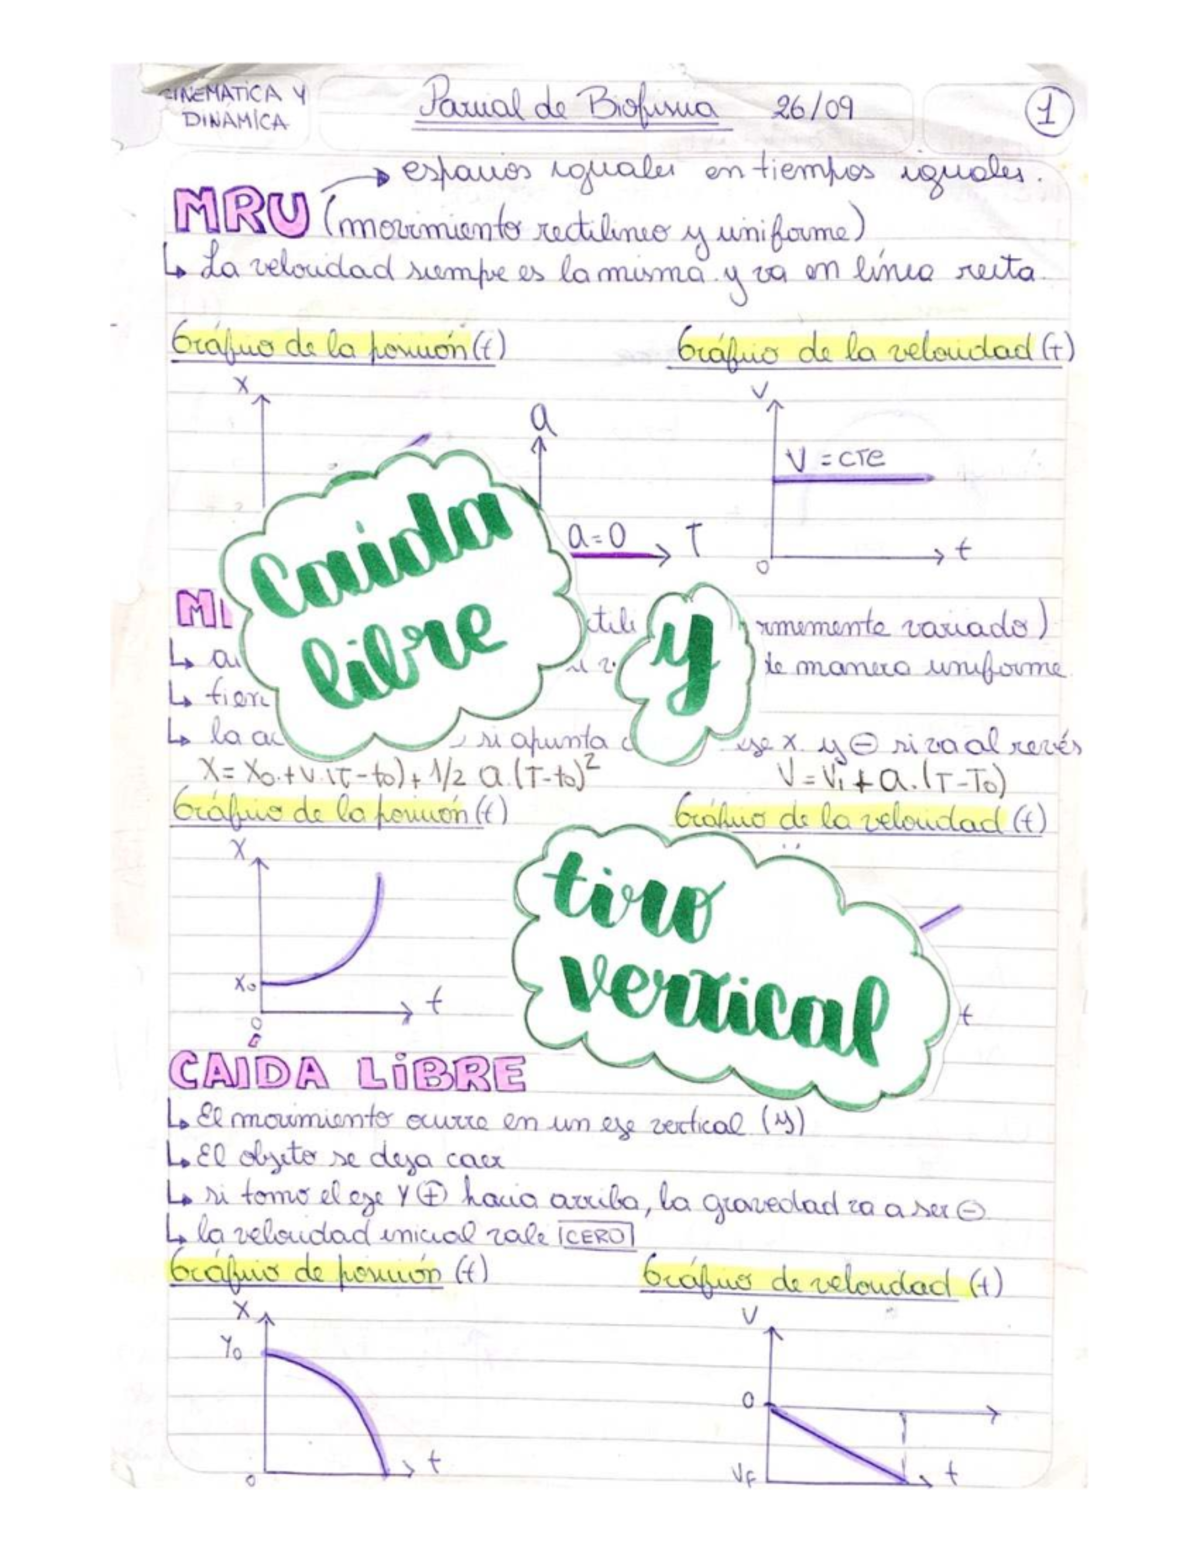 CINEMATICA Y
DINAMICA
Parcial de Biofísica 26/09
1
espacios iguales en tiempos iguales.
MRU (movimiento rectilineo y uniforme)
↳ La velocidad siempre es la misma y va en línea recta.
Gráfico de la posición (t)
Gráfico de la velocidad (t)
X
a
a=0
T
V
V = cte
0
t
Caida
libre
y
rmemente variado)
de manera uniforme
↳ la ac
si apunta
eje x y ⊖ si va al revés
X = X₀ + V.(T-t₀) + 1/2 a.(T-t₀)²
V = Vi + a.(T-T₀)
Gráfico de la posición (t)
Gráfico de la velocidad (t)
X
X₀
0
t
tiro
vertical
t
CAÍDA LIBRE
↳ El movimiento ocurre en un eje vertical (y)
↳ El objeto se deja caer
↳ si tomo el eje Y ⊕ hacia arriba, la gravedad va a ser ⊖
↳ la velocidad inicial vale CERO
Gráfico de posición (t)
Gráfico de velocidad (t)
X
Y₀
0
t
V
0
VF
t